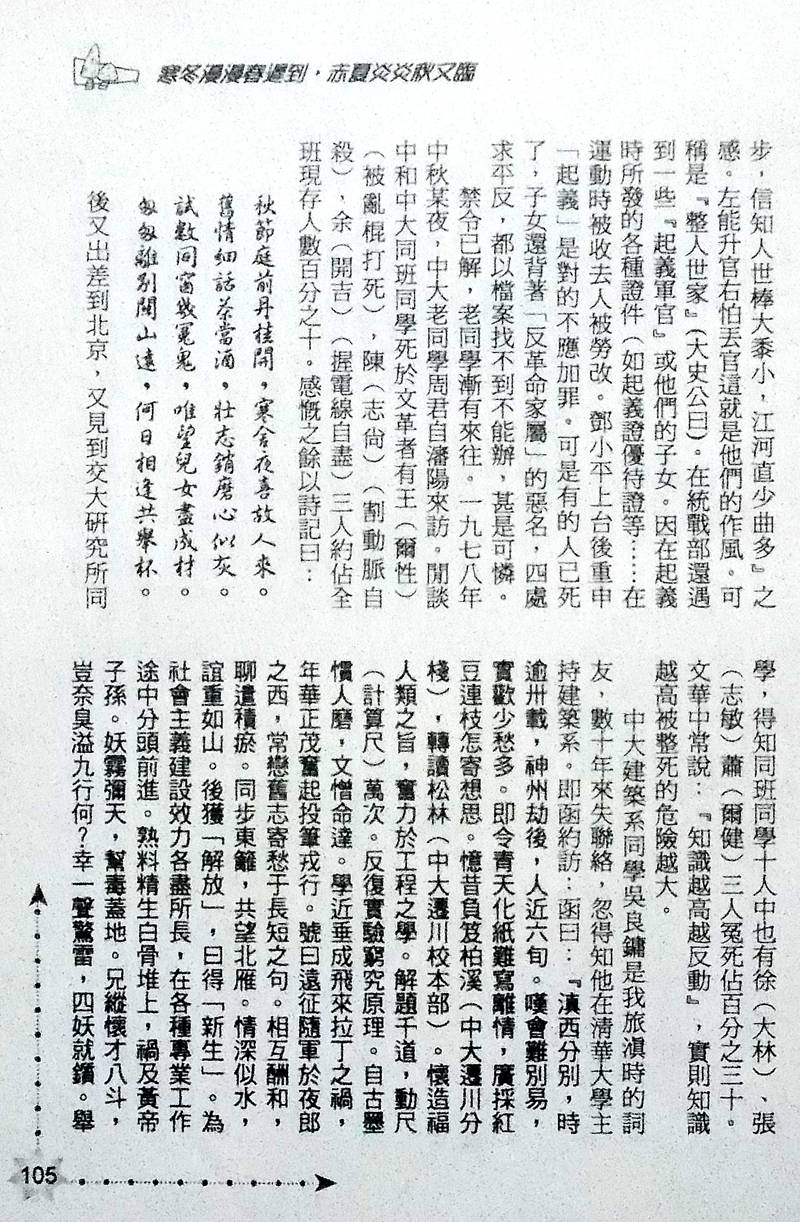 寒冬漫漫春遲到，赤夏炎炎秋又臨
步，信知人世棒大黍小，江河直少曲多』之
感。左能升官右怕丟官這就是他們的作風。可
稱是『整人世家』(大史公曰)。在統戰部還遇
到一些『起義軍官』或他們的子女。因在起義
時所發的各種證件（如起義證優待證等……在
運動時被收去人被勞改。鄧小平上台後重申
「起義」是對的不應加罪。可是有的人已死
了，子女還背著「反革命家屬」的惡名，四處
求平反，都以檔案找不到不能辦，甚是可憐。
禁令已解，老同學漸有來往。一九七八年
中秋某夜，中大老同學周君自瀋陽來訪。閒談
中和中大同班同學死於文革者有王（爾性）
（被亂棍打死），陳（志尙）（割動脈自
殺），余（開吉）（握電線自盡）三人約佔全
班現存人數百分之十。感慨之餘以詩記曰：
秋節庭前丹桂開，寒舍夜喜故人來。
舊情細話茶當酒，壯志銷磨心似灰。
試數同窗幾冤鬼，唯望兒女盡成材。
匆匆離別關山遠，何日相逢共舉杯。
後又出差到北京，又見到交大研究所同
學，得知同班同學十人中也有徐（大林）、張
（志敏）蕭（爾健）三人冤死佔百分之三十。
文華中常說：『知識越高越反動』，實則知識
越高被整死的危險越大。
中大建築系同學吳良鏞是我旅滇時的詞
友，數十年來失聯絡，忽得知他在清華大學主
持建築系。即函約訪：函曰：『滇西分別，時
逾卅載，神州劫後，人近六旬。嘆會難別易，
實歡少愁多。即令青天化紙難寫離情，廣採紅
豆連枝怎寄想思。憶昔負笈柏溪（中大遷川分
棧），轉讀松林（中大遷川校本部）。懷造福
人類之旨，奮力於工程之學。解題千道，動尺
（計算尺）萬次。反復實驗窮究原理。自古墨
慣人磨，文憎命達。學近垂成飛來拉丁之禍，
年華正茂奮起投筆戎行。號曰遠征隨軍於夜郎
之西，常戀舊志寄愁于長短之句。相互酬和，
聊遣積瘀。同步東籬，共望北雁。情深似水，
誼重如山。後獲「解放」，曰得「新生」。為
社會主義建設效力各盡所長，在各種專業工作
途中分頭前進。熟料精生白骨堆上，禍及黃帝
子孫。妖霧彌天，幫毒蓋地。兄縱懷才八斗，
豈奈臭溢九行何？幸一聲驚雷，四妖就鑕。舉
105